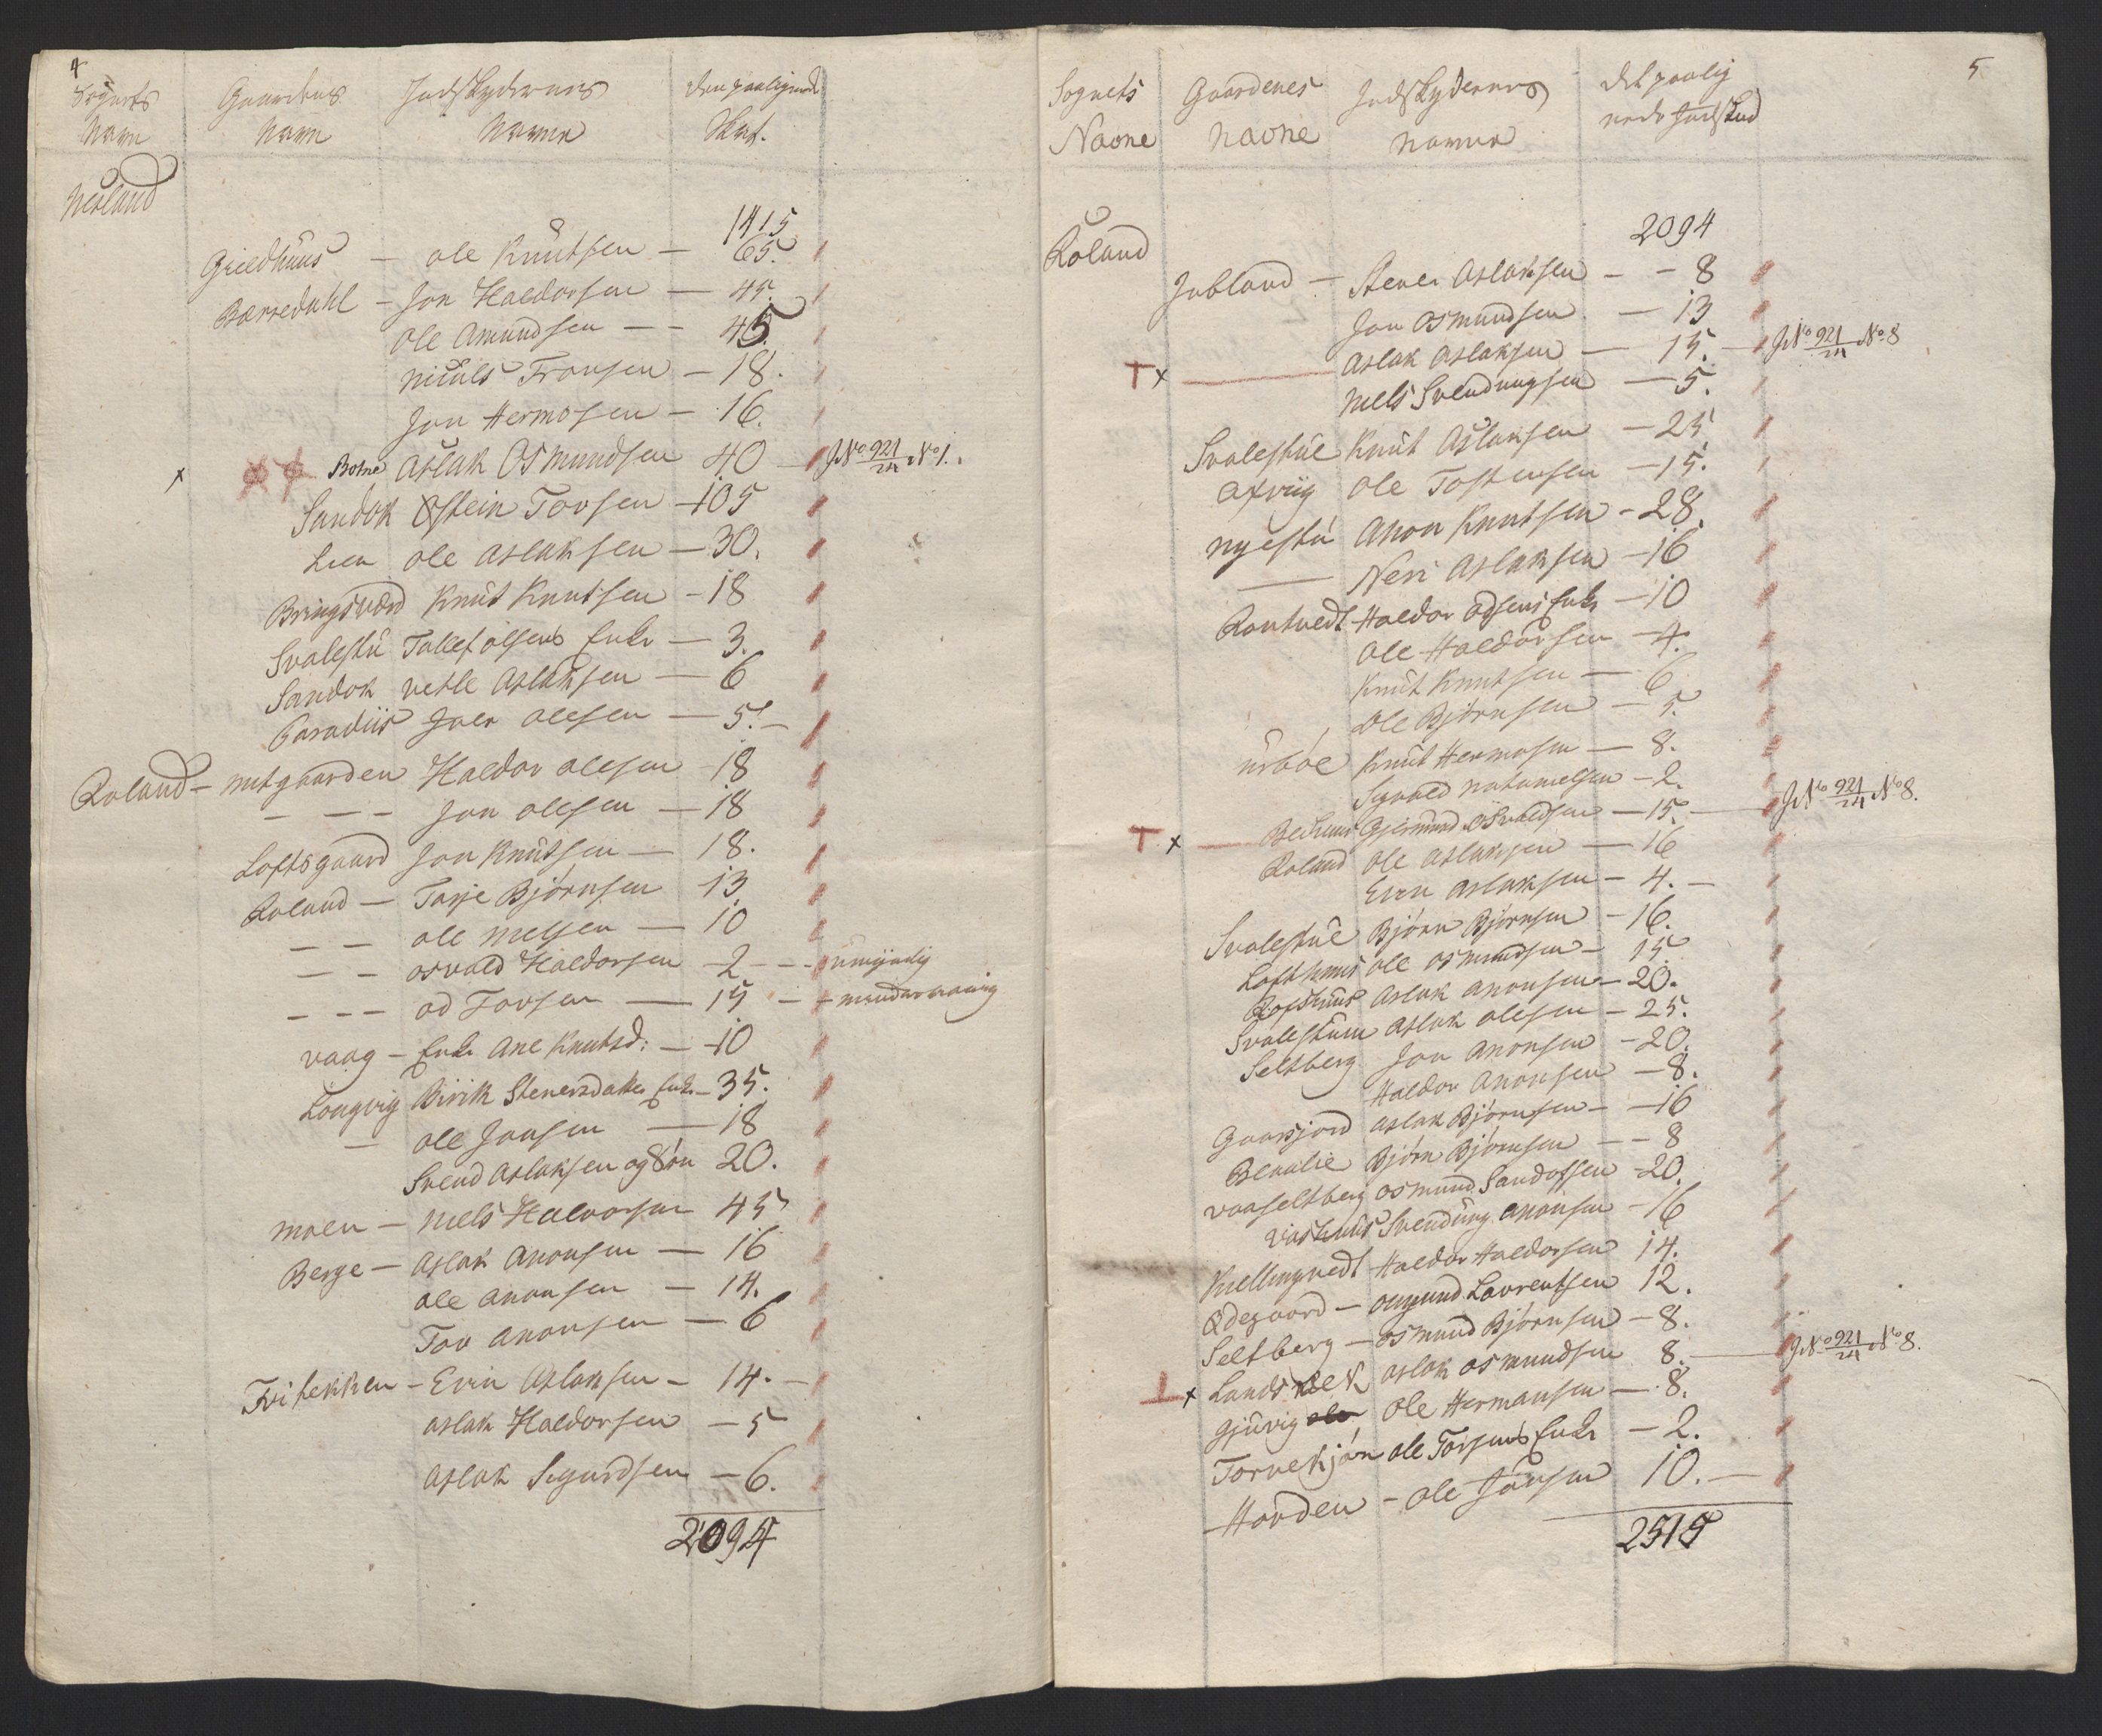 4
Sognets Gaardens Indskydernes den paalignede
Navn Navn Navne Skat.
Nesland
1415
Griedhuus — Ole Knutsen — 65.
Børtedahl — Jon Haldorsen — 45.
Ole Amundsen — — 45.
Niculs Fronsen — 18.
Jon Hermosen — 16.
x Botne Aslak Osmundsen 40 — JNo 921/24 No 1.
Sandok Østein Torsen — 105
Lien Ole Aslaksen — 30.
Bringsværd Knut Knutsen — 18
Svalestu Tallef Olsens Enke — 3.
Sandok Vetle Aslaksen — 6
Paradiis Joer Olesen — 5. —
Roland — Mitgaarden Haldor Olesen 18
— — — Jon Olesen — 18
Loftsgaard Jon Knutsen — 18.
Roland — Torje Bjørnsen 13
— — Ole Nielsen — 10
— — Osvald Haldorsen — 2 — — umyndig
— — — Od Torsen — 15 — —
Vaag — Enke Ane Knutsd: — 10
Longvig Birik Stenersdatter Enke — 35.
— Ole Jonsen — 18
Svend Aslaksen og Søn 20.
Moen — Niels Halvorsen 45
Berge — Aslak Anonsen — 16
Ole Anonsen — 14.
Tov Anonsen — 6
Tvitekken — Evin Aslaksen — 14. —
Aslak Haldorsen — 5
Aslak Sigurdsen — 6.
2094
5
Sognets Gaardenes Indskydernes det paalig
Navne Navne Navne nede Indskud
2094
Roland
Jubland — Stener Aslaksen — — 8
Jon Osmundsen — 13
T x — Aslak Aslaksen — 15. — JNo 921/24 No 8
Niels Svendungsen — 5.
Svalestue Knut Aslaksen — 25.
Axviig Ole Tostensen — 15.
Nyestu Anon Knutsen — 28.
— Neri Aslaksen — 16
Rontvedt Haldor Odsens Enke — 10
Ole Haldorsen — 4.
Knut Knutsen — 6
Ole Bjørnsen — 5.
Urbøe Knut Hermosen — 8.
Sigvald Natanielsen — 2.
T x — Gjermund Osvaldsen — 15. — JNo 921/24 No 8.
Roland Ole Aslaksen — 16
Evin Aslaksen — 4. —
Svalestue Bjørn Bjørnsen — 16.
Lofthuus Ole Osmundsen — 15
Lofthuus Aslak Anonsen — 20.
Svalestuen Aslak Olesen — 25.
Seltberg Jon Anonsen — 20.
Haldor Anonsen — 8.
Gaasjord Aslak Bjørnsen — — 16
Benalie Bjørn Bjørnsen — — 8
Vaaseltberg Osmund Sandofsen — 20.
Vashuus Svendung Anonsen — 16
Kvellingvedt Haldor Haldorsen 14.
Ødegaard — Omund Lavrentsen 12.
Seltberg — Osmund Bjørnsen — 8.
T x Landsværk Aslak Osmundsen 8. — JNo 921/24 No 8.
Gjuvig Ole Hermansen — 8.
Torvetjøn Ole Torsens Enke — 2.
Hovden — Ole Jonsen 10. —
2515